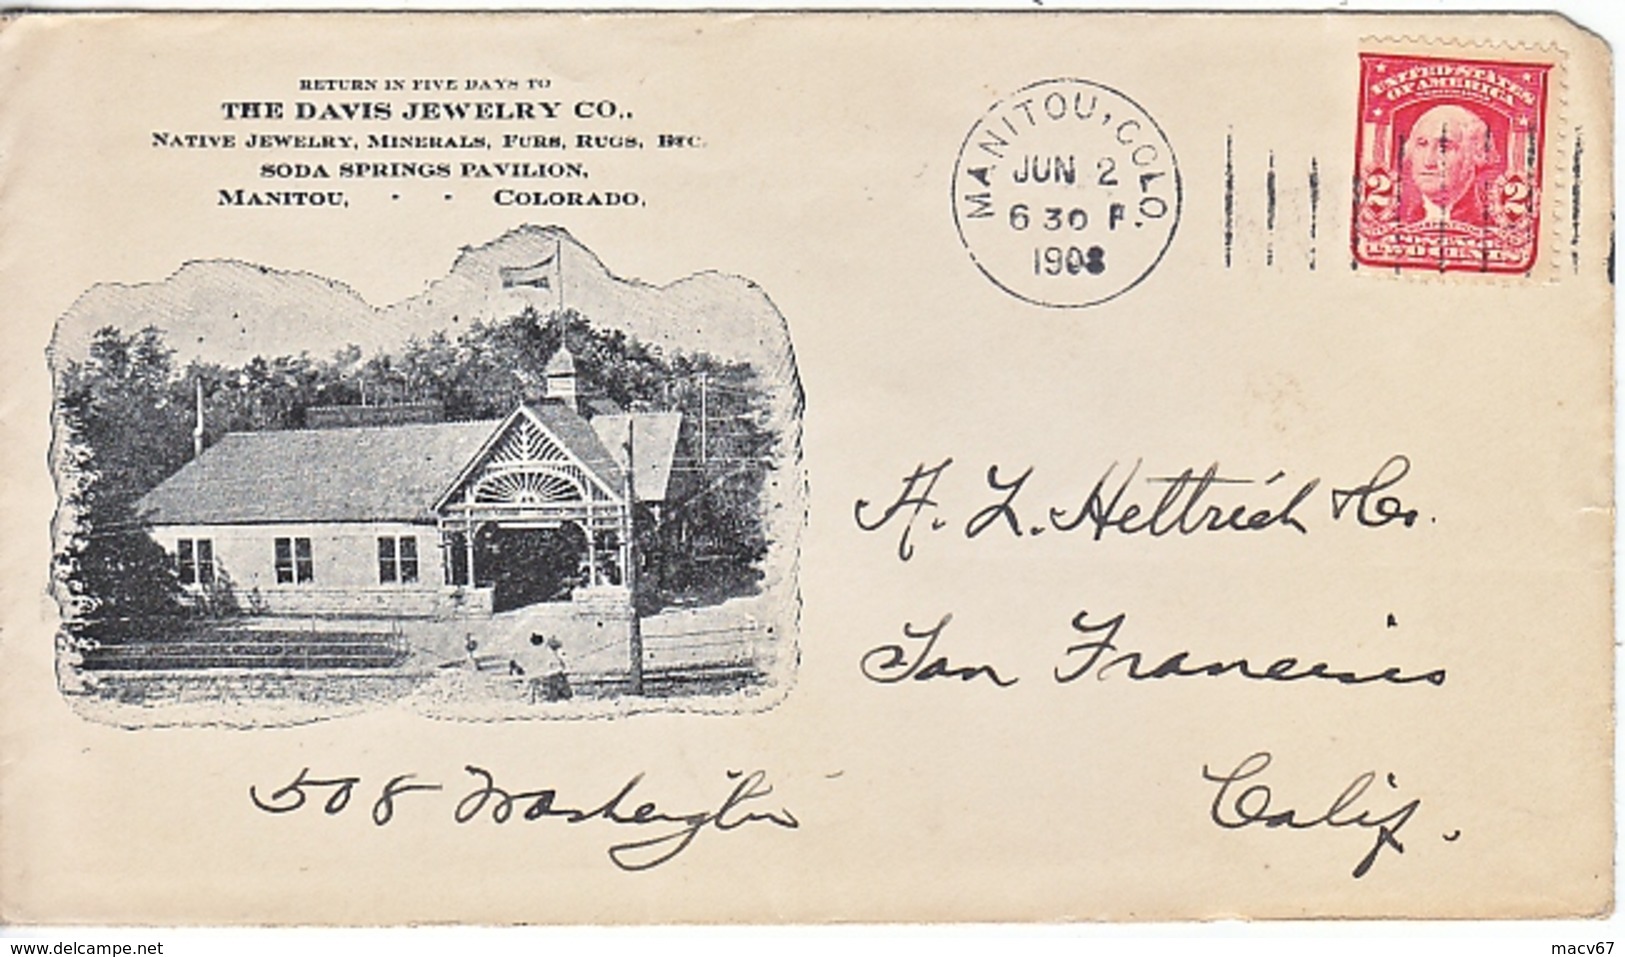 RETURN IN FIVE DAYS TO
THE DAVIS JEWELRY CO.,
NATIVE JEWELRY, MINERALS, FURS, RUGS, ETC.
SODA SPRINGS PAVILION,
MANITOU, - - COLORADO.
MANITOU, COLO.
JUN 2
6 30 P.
1908
UNITED STATES
OF AMERICA
2 2
POSTAGE
TWO CENTS
A. L. Hettrich & Co.
San Francisco
Calif.
508 Washington
www.delcampe.net
macv67